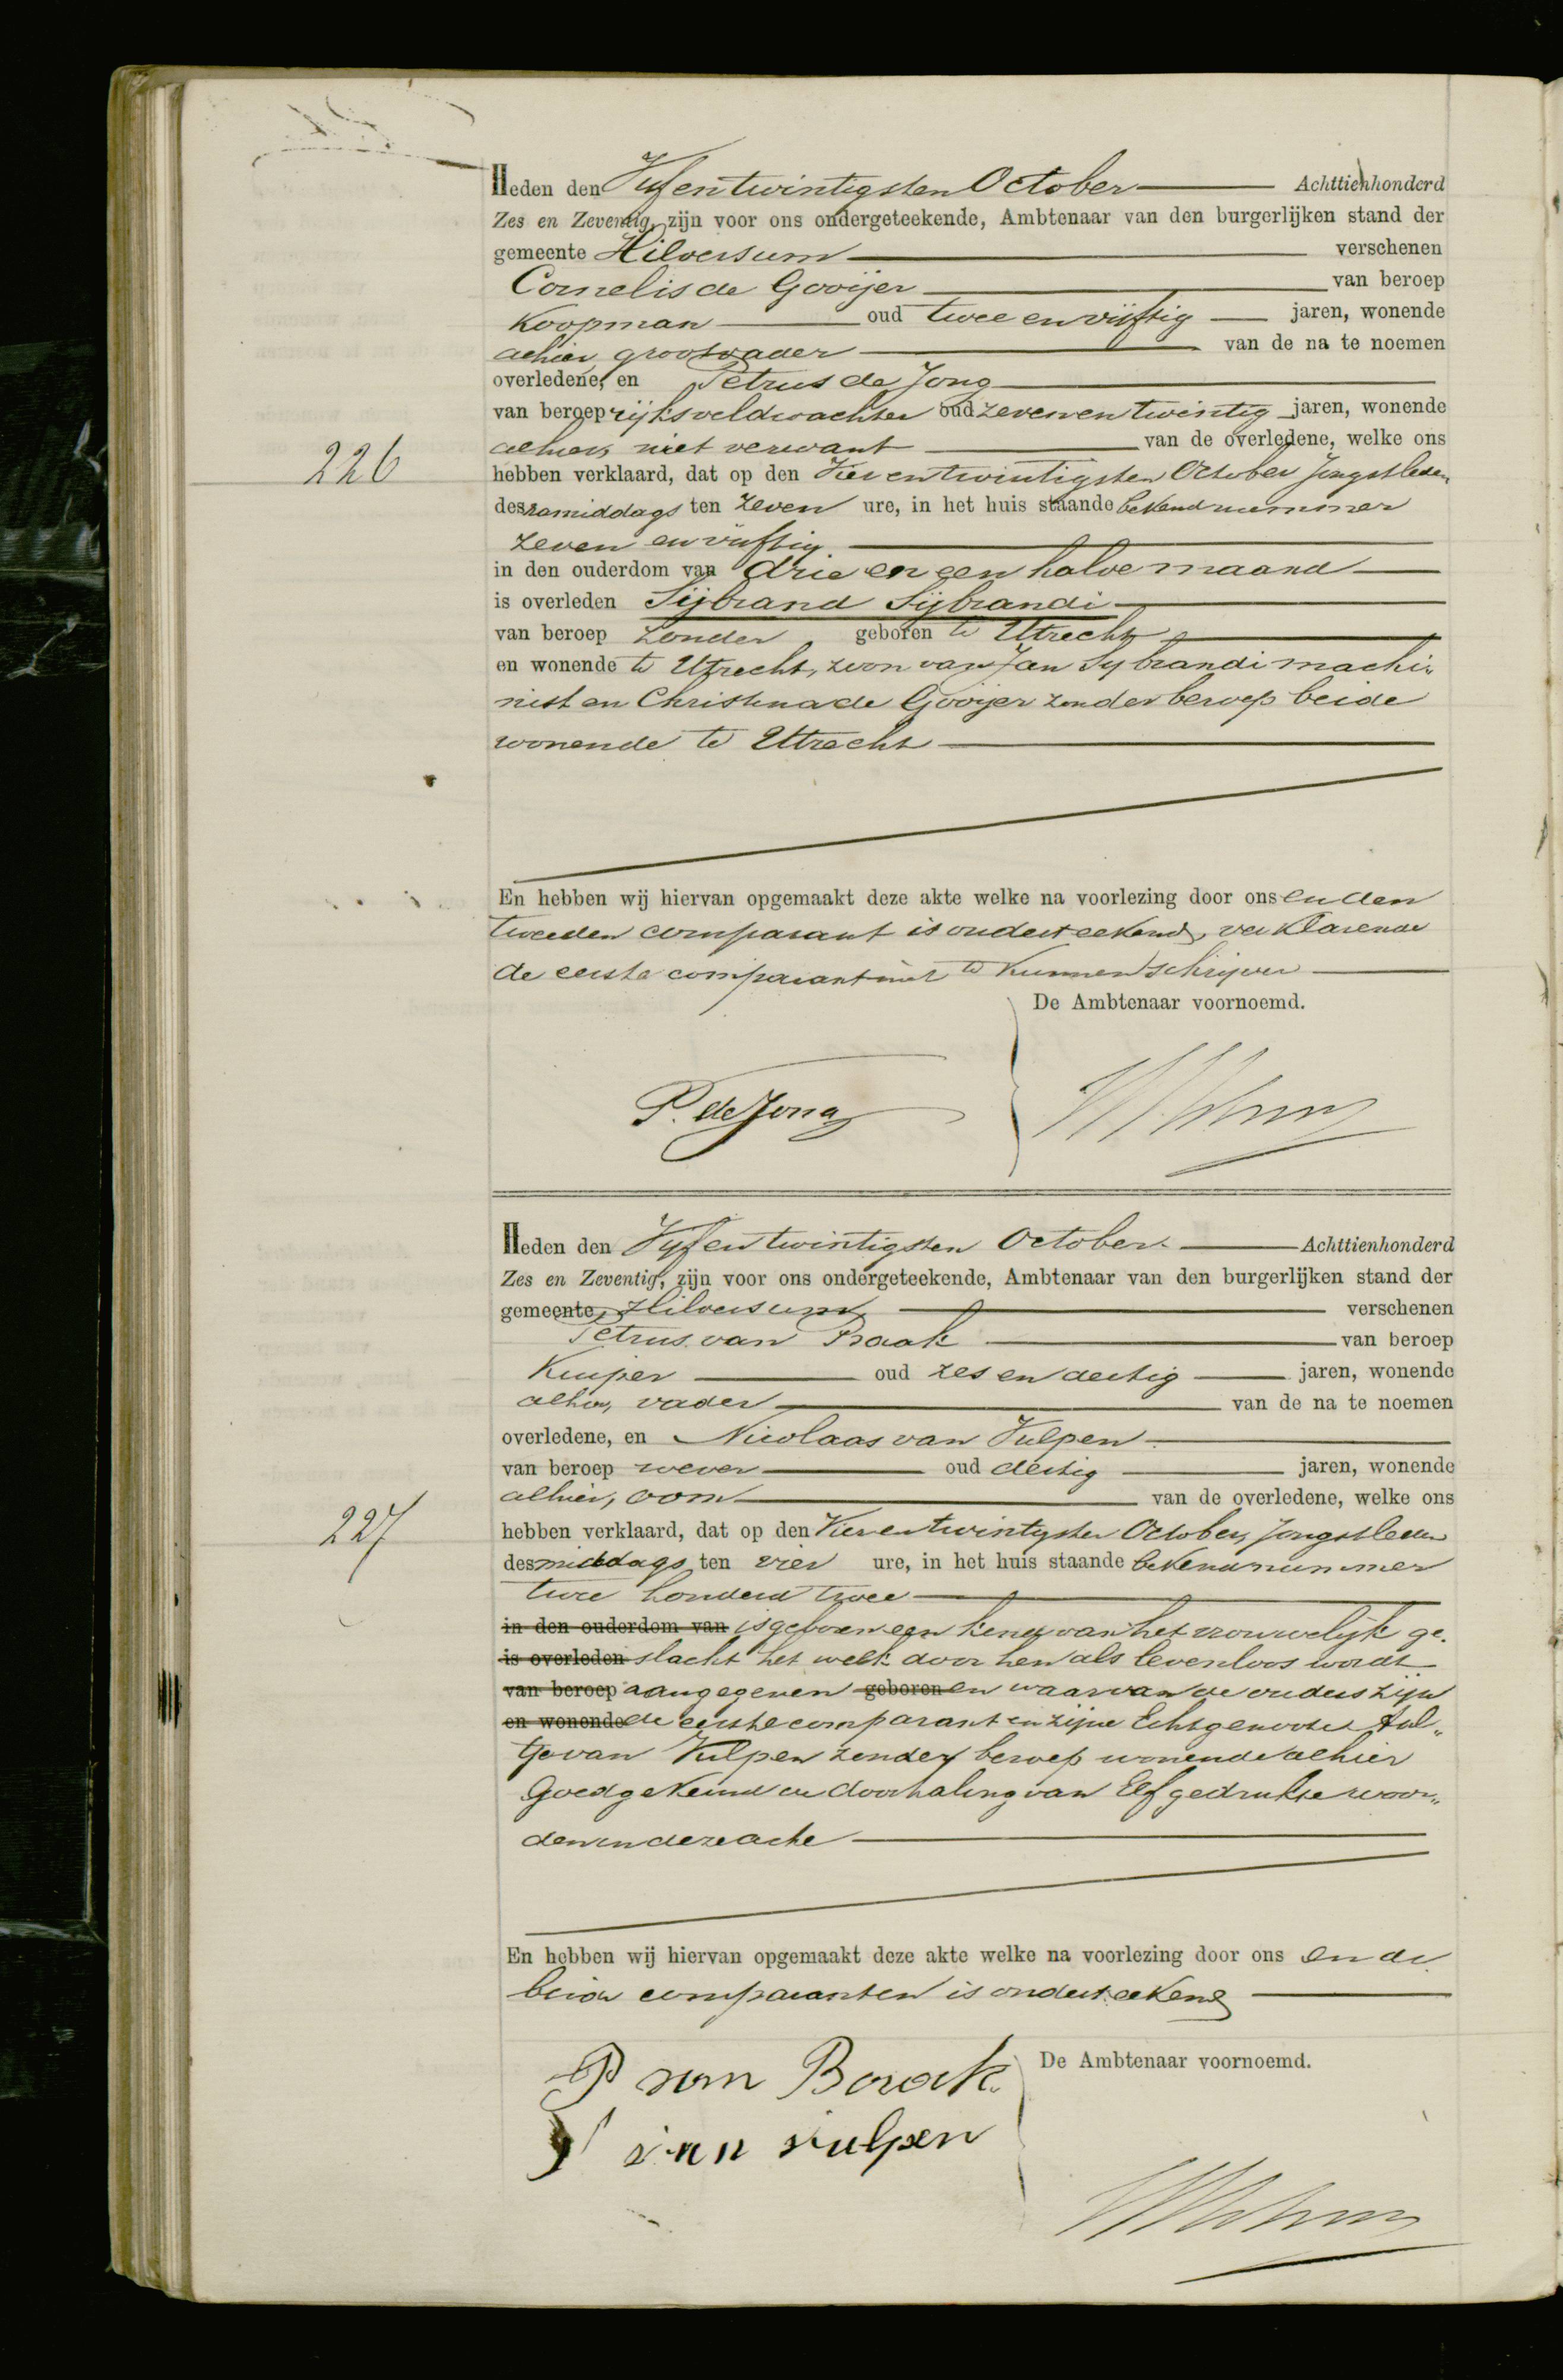 Heden den Vijfentwintigsten October Achttienhonderd
Zes en Zeventig, zijn voor ons ondergeteekende, Ambtenaar van den burgerlijken stand der
gemeente Hilversum verschenen
Cornelis de Gooijer van beroep
Koopman oud twee en vijftig jaren, wonende
alhier, grootvader van de na te noemen
overledene, en Petrus de Jong
van beroep rijksveldwachter oud zeven en twintig jaren, wonende
alhier, niet verwant van de overledene, welke ons
226
hebben verklaard, dat op den Vierentwintigsten October jongstleden
des namiddags ten zeven ure, in het huis staande bekend nummer
zeven en vijftig
in den ouderdom van drie en een halve maand
is overleden Sijbrand Sijbrandi
van beroep zonder geboren te Utrecht
en wonende te Utrecht, zoon van Jan Sybrandi machi„
nist en Christina de Gooijer zonder beroep beide
wonende te Utrecht
En hebben wij hiervan opgemaakt deze akte welke na voorlezing door ons en den
tweeden comparant is onderteekend, verklarende
de eerste comparant niet te kunnen schrijven
De Ambtenaar voornoemd.
P. de Jong
Heden den Vyfentwintigsten October Achttienhonderd
Zes en Zeventig, zijn voor ons ondergeteekende, Ambtenaar van den burgerlijken stand der
gemeente Hilversum verschenen
Petrus van Braak van beroep
Kuiper oud zes en dertig jaren, wonende
alhier, vader van de na te noemen
overledene, en Nicolaas van Vulpen
van beroep wever oud dertig jaren, wonende
alhier, oom van de overledene, welke ons
227
hebben verklaard, dat op den Vierentwintigsten October, jongstleden
des middags ten vier ure, in het huis staande bekend nummer
twee honderd twee
in den ouderdom van is geboren een kind van het vrouwelijk ge„
is overleden slacht het welk door hen als levenloos wordt
van beroep aangegeven geboren en waarvan de ouders zijn
en wonende de eerste comparant en zijne Echtgenoote Aal„
tje van Vulpen zonder beroep wonende alhier
Goedgekeurd de doorhaling van Elf gedrukte woor„
den in deze acte
En hebben wij hiervan opgemaakt deze akte welke na voorlezing door ons en de
beide comparanten is onderteekend
De Ambtenaar voornoemd.
P van Braak
van vulpen